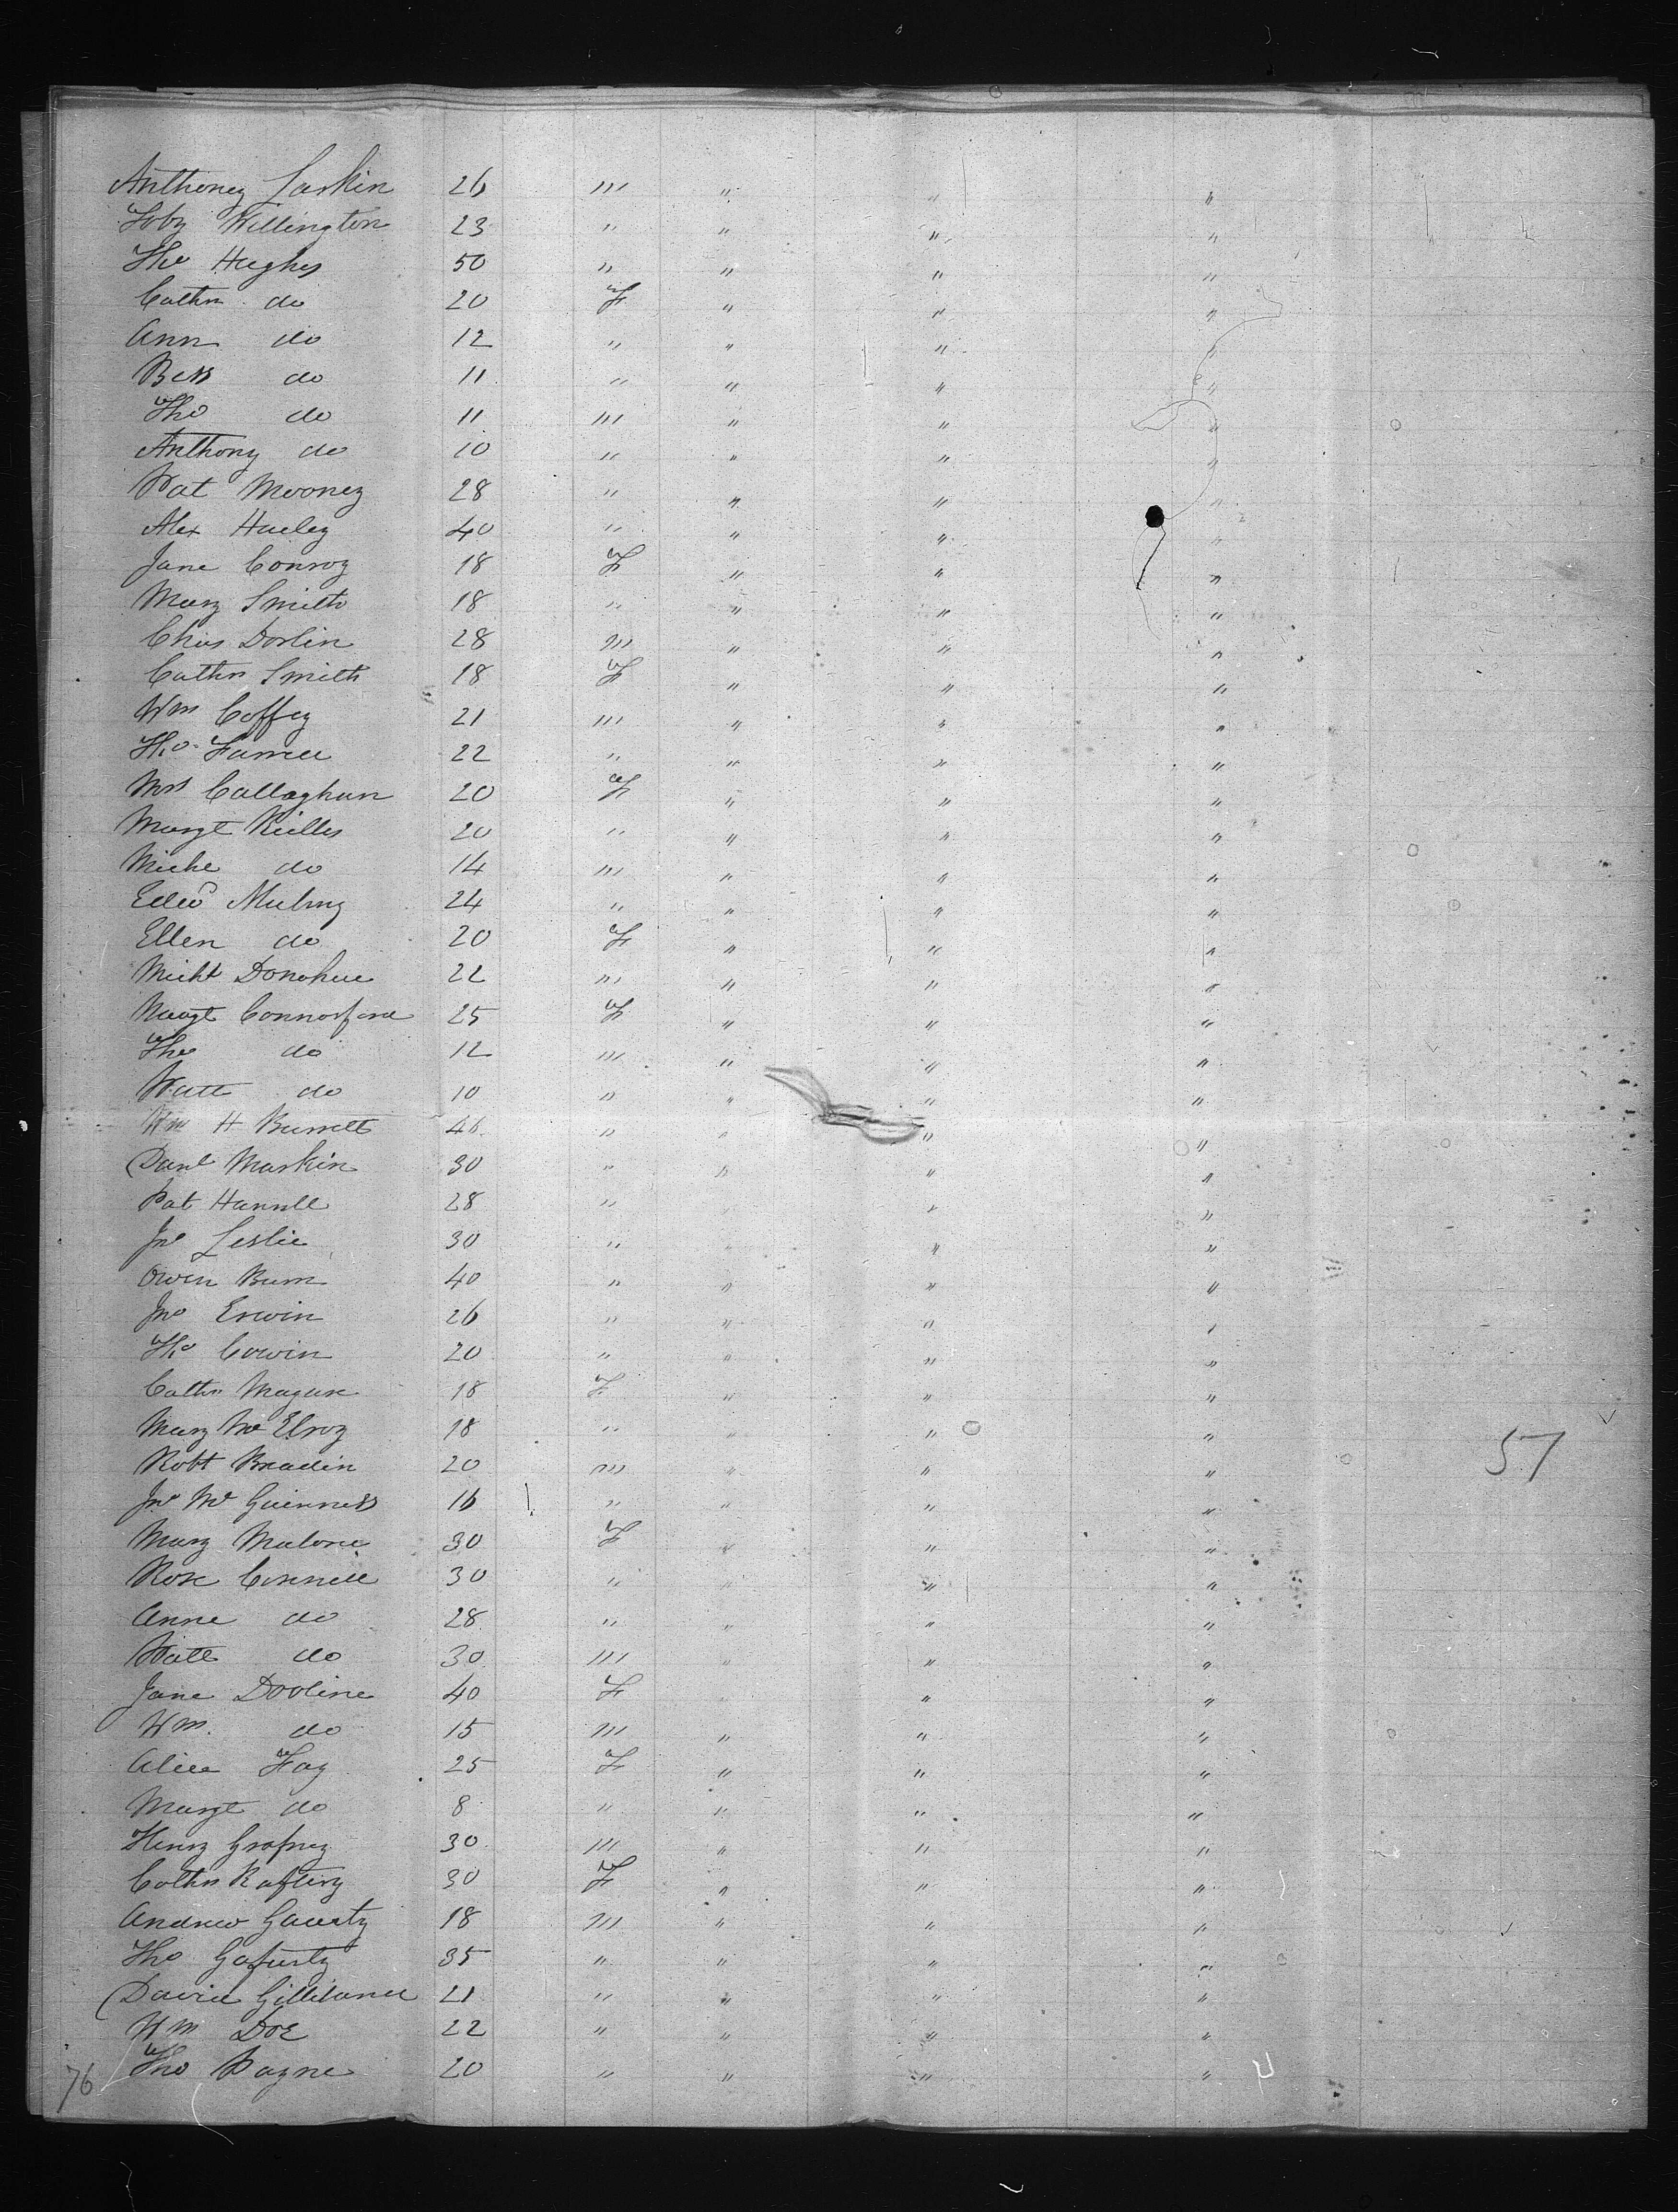 Anthoney Larkin 26 m " " "
Toby Willington 23 " " " "
Tho Hughes 50 " " " "
Cathn do 20 F " " "
Ann do 12 " " " "
Bess do 11 " " " "
Tho do 11 m " " "
Anthony do 10 " " " "
Pat Mooney 28 " " " "
Alex 40 " " " "
Jane Conroy 18 F " " "
Mary Smith 18 " " " "
Chas Dorlin 28 m " " "
Cathn Smith 18 F " " "
Wm Coffey 21 m " " "
Tho Farrell 22 " " " "
Mrs Callaghan 20 F " " "
Margt 20 " " " "
Michl do 14 m " " "
Edwd 24 " " " "
Ellen do 20 F " " "
Michl Donohue 22 m " " "
Margt 25 F " " "
Tho do 12 m " " "
do 10 " " " "
Wm H Burrett 46 " " " "
Danl Markin 30 " " " "
Pat 28 " " " "
Jno Leslie 30 " " " "
Owen 40 " " " "
Jno Erwin 26 " " " "
Tho Corwin 20 " " " "
Cathn Magure 18 F " " "
Mary Mc Elroy 18 " " " "
Robt Bradin 20 m " " "
57
Jno Mc Guinness 16 " " " "
Mary Malone 30 F " " "
Rose 30 " " " "
Anne do 28 " " " "
do 30 m " " "
Jane Dooline 40 F " " "
Wm. do 15 m " " "
Alice Fay 25 F " " "
Margt do 8 " " " "
Henry 30 m " " "
Cathn Raftery 30 F " " "
Andrew 18 m " " "
Tho 35 " " " "
David Gilliland 21 " " " "
Wm Doe 22 " " " "
Tho Payne 20 " " " "
76